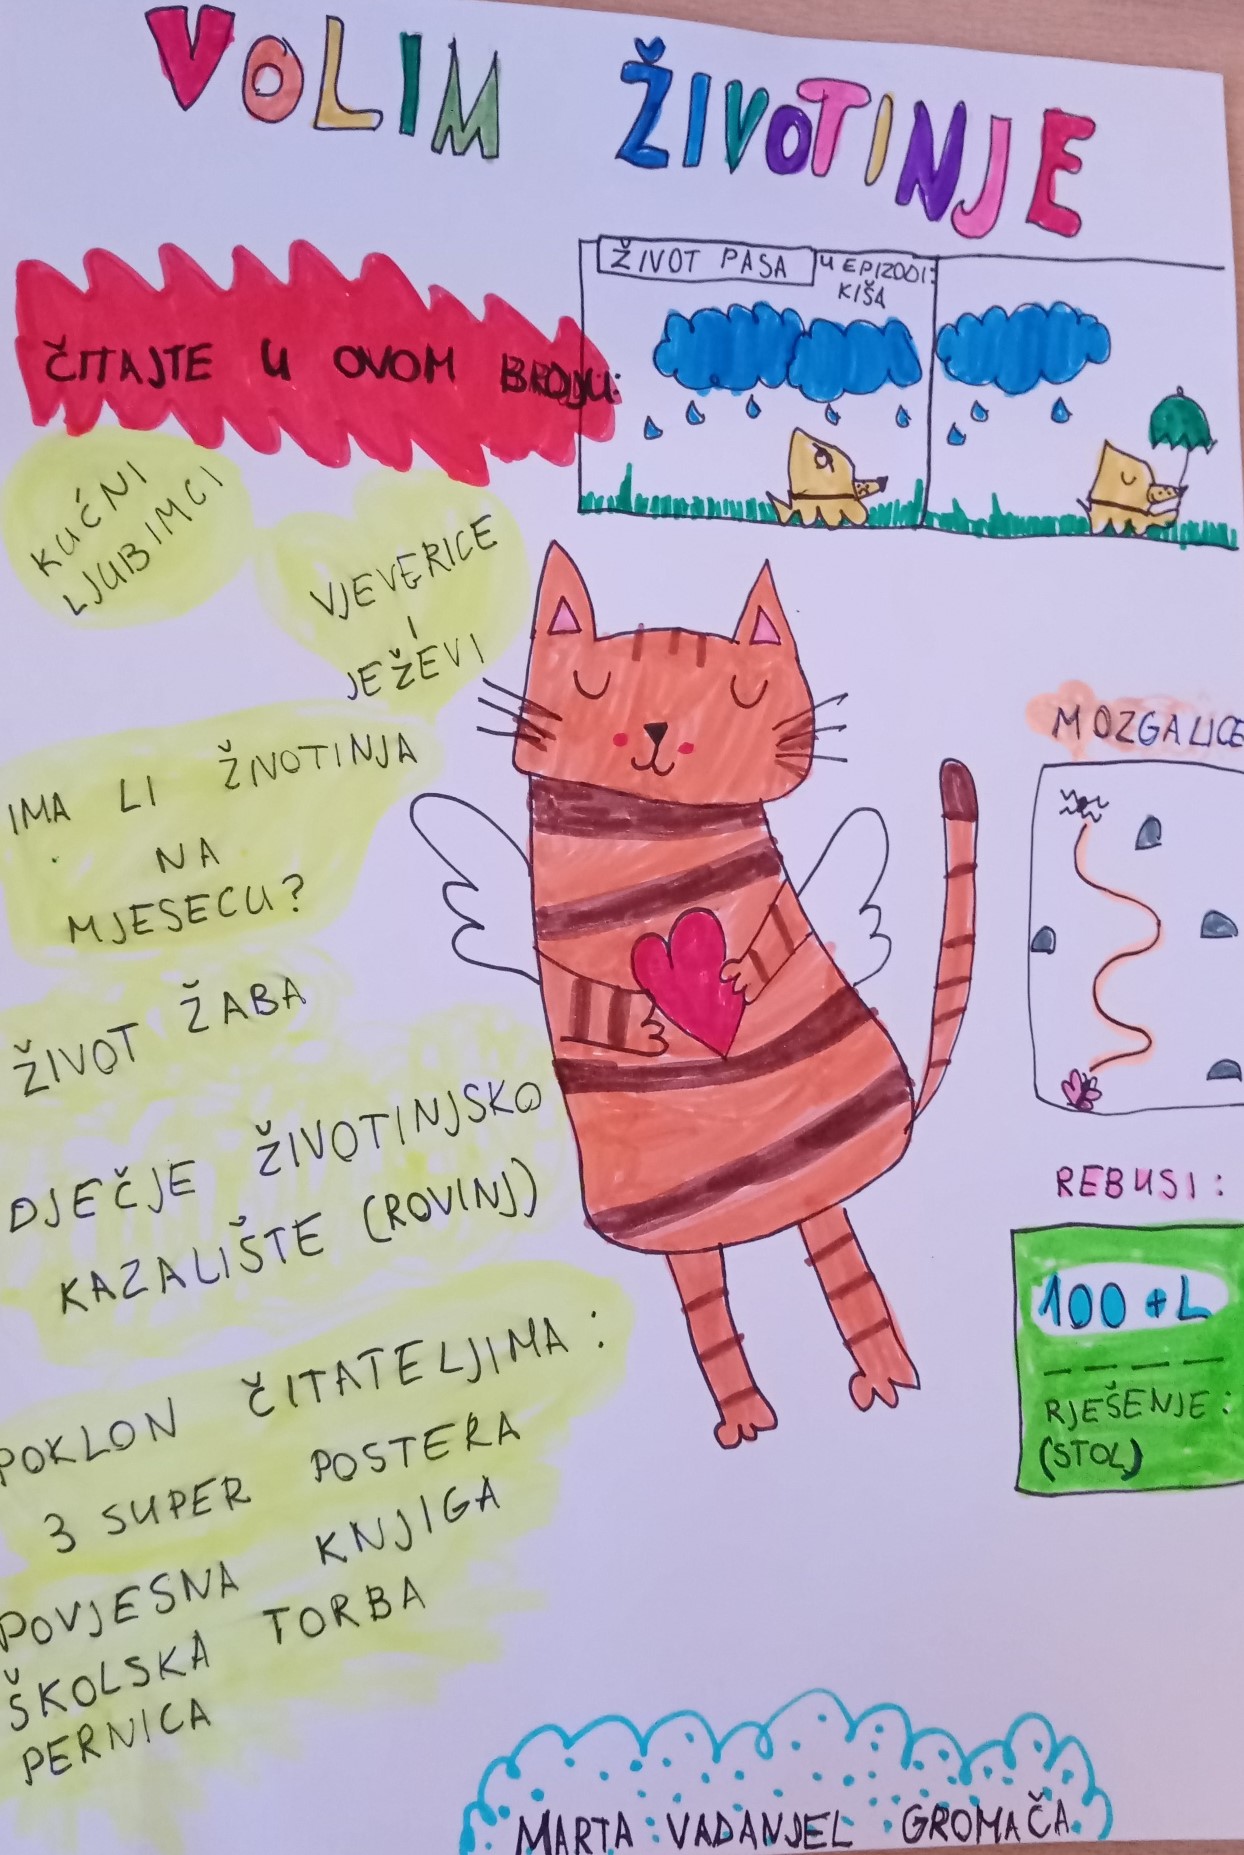 VOLIM ŽIVOTINJE
ČITAJTE U OVOM BROJU:
KUĆNI
LJUBIMCI
VJEVERICE
I
JEŽEVI
IMA LI ŽIVOTINJA
NA
MJESECU?
ŽIVOT ŽABA
DJEČJE ŽIVOTINJSKO
KAZALIŠTE (ROVINJ)
POKLON ČITATELJIMA:
3 SUPER POSTERA
POVJESNA KNJIGA
ŠKOLSKA TORBA
PERNICA
ŽIVOT PASA
U EPIZODI:
KIŠA
MOZGALICE
REBUSI:
100 + L
_ _ _ _
RJEŠENJE:
(STOL)
MARTA VADANJEL GROMAČA